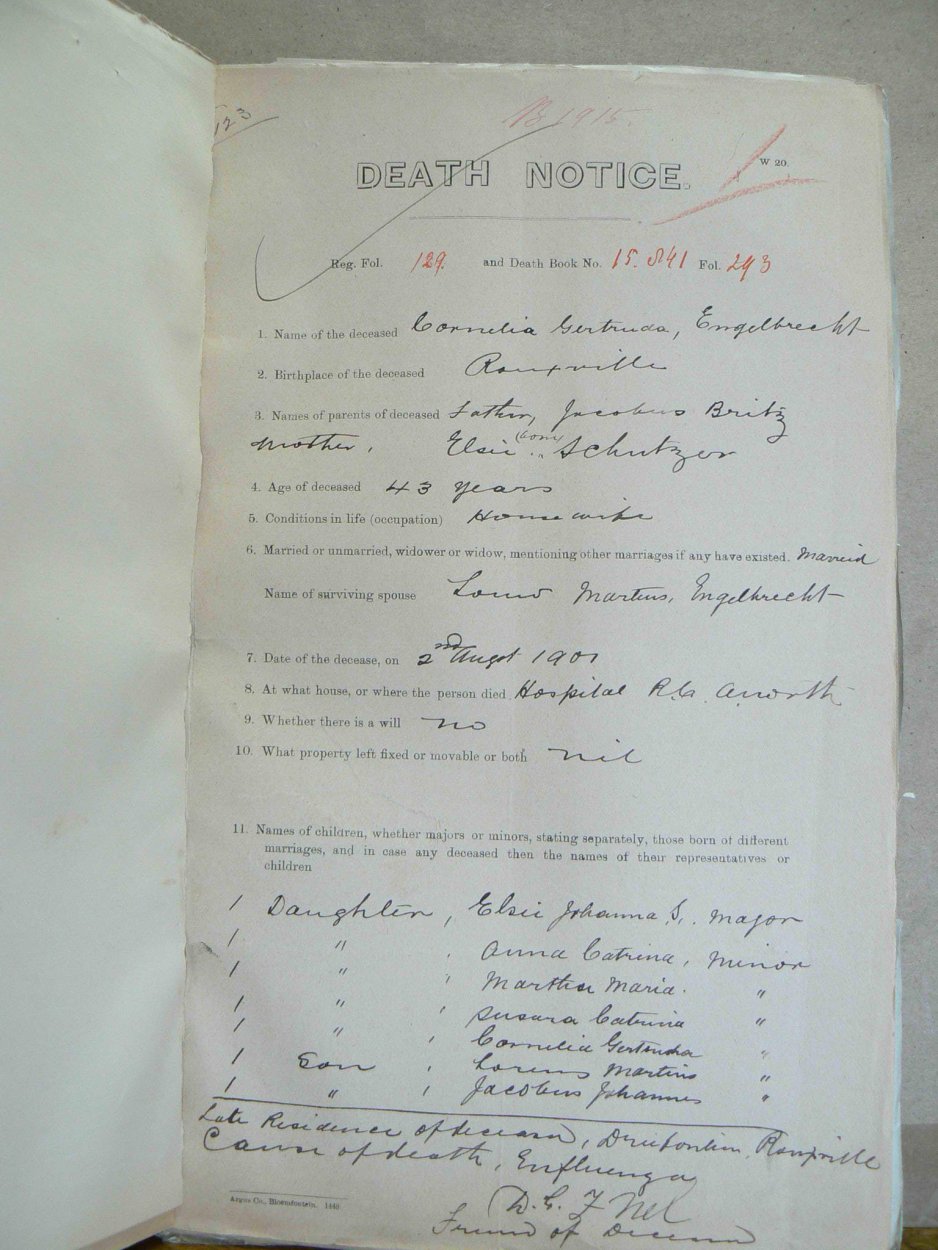 123
1915.
W 20.
DEATH NOTICE.
Reg. Fol. 129. and Death Book No. 15.841 Fol. 293
1. Name of the deceased Cornelia Gertruda, Engelbrecht
2. Birthplace of the deceased Rouxville
3. Names of parents of deceased Father, Jacobus Britz
Mother, Elsie (born) Schutzer
4. Age of deceased 43 years
5. Conditions in life (occupation) Housewife
6. Married or unmarried, widower or widow, mentioning other marriages if any have existed. Married
Name of surviving spouse Martins, Engelbrecht
7. Date of the decease, on 2nd Augst 1901
8. At what house, or where the person died Hospital R.C.
9. Whether there is a will no
10. What property left fixed or movable or both nil
11. Names of children, whether majors or minors, stating separately, those born of different
marriages, and in case any deceased then the names of their representatives or
children
1 Daughter, Elsie Johanna S. Major
1 " , Anna Catrina, Minor
1 " , Martha Maria. "
1 " , Susara Catrina "
1 " , Cornelia Gertruda "
1 Son , Lorens Martins "
1 " , Jacobus Johannes "
Late Residence of deceased, Rouxville
Cause of death, Enfluenza
D. G. F. Nel
Friend of Deceased
Argus Co., Bloemfontein. 1448